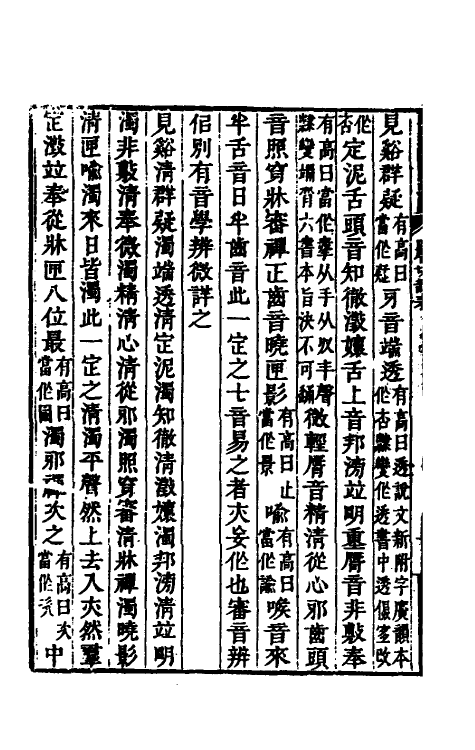 見谿群疑有高曰當作㞾牙音端透有高曰透說文新附字廣韻本作杏隸變作透書中透倀室改
作杏定泥舌頭音知徹澂孃舌上音邦滂竝明重脣音非敷奉
有高曰當作奉从手从収丰聲隸變壖背六書本旨決不可編微輕脣音精清從心邪齒頭
音照穿牀審禪正齒音曉匣影有高曰當作景止喻有高曰當作諭喉音來
半舌音日半齒音此一定之七音易之者夾妄作也審音辨
侣別有音學辨微詳之
見谿清群疑濁端透清定泥濁知徹清澂孃濁邦滂清竝明
濁非敷清奉微濁精清心清從邪濁照穿審清牀禪濁曉影
清匣喻濁來日皆濁此一定之清濁平聲然上去入夾然羣
定澂竝奉從牀匣八位最有高曰當作㝡濁邪禪次之有高曰次當作㳄中